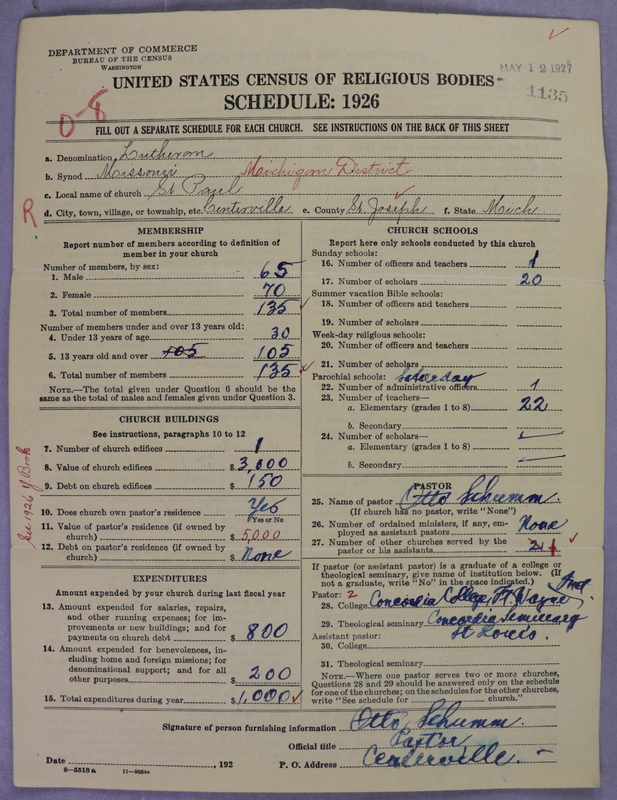 DEPARTMENT OF COMMERCE
BUREAU OF THE CENSUS
WASHINGTON
MAY 12 1927
1135
UNITED STATES CENSUS OF RELIGIOUS BODIES
SCHEDULE: 1926
0-8
FILL OUT A SEPARATE SCHEDULE FOR EACH CHURCH. SEE INSTRUCTIONS ON THE BACK OF THIS SHEET
a. Denomination Lutheran
b. Synod Missouri Michigan District
c. Local name of church St Paul
R
d. City, town, village, or township, etc. Centerville e. County St. Joseph f. State Mich
MEMBERSHIP
Report number of members according to definition of
member in your church
Number of members, by sex:
1. Male 65
2. Female 70
3. Total number of members 135
Number of members under and over 13 years old:
4. Under 13 years of age 30
5. 13 years old and over 105 105
6. Total number of members 135
NOTE.—The total given under Question 6 should be
same as the total of males and females given under Question 3.
CHURCH BUILDINGS
See instructions, paragraphs 10 to 12
7. Number of church edifices 1
8. Value of church edifices $ 3,000
9. Debt on church edifices $ 150
10. Does church own pastor's residence? Yes
Yes or No
11. Value of pastor's residence (if owned by
church) $ 5,000
12. Debt on pastor's residence (if owned by
church) $ None
See 1926 Y Book
EXPENDITURES
Amount expended by your church during last fiscal year
13. Amount expended for salaries, repairs,
and other running expenses; for im-
provements or new buildings; and for
payments on church debt $ 800
14. Amount expended for benevolences, in-
cluding home and foreign missions; for
denominational support; and for all
other purposes $ 200
15. Total expenditures during year $ 1,000
CHURCH SCHOOLS
Report here only schools conducted by this church
Sunday schools:
16. Number of officers and teachers 1
17. Number of scholars 20
Summer vacation Bible schools:
18. Number of officers and teachers
19. Number of scholars
Week-day religious schools:
20. Number of officers and teachers
21. Number of scholars
Parochial schools: Saturday
22. Number of administrative officers 1
23. Number of teachers—
a. Elementary (grades 1 to 8) 22
b. Secondary
24. Number of scholars—
a. Elementary (grades 1 to 8)
b. Secondary
PASTOR
25. Name of pastor Otto Schumm.
(If church has no pastor, write "None")
26. Number of ordained ministers, if any, em-
ployed as assistant pastors None
27. Number of other churches served by the
pastor or his assistants
If pastor (or assistant pastor) is a graduate of a college or
theological seminary, give name of institution below. (If
not a graduate, write "No" in the space indicated.)
Pastor: 2 Ind.
28. College Concordia College, Ft Wayne,
29. Theological seminary Concordia Seminary
Assistant pastor: St Louis.
30. College
31. Theological seminary
NOTE.—Where one pastor serves two or more churches,
Questions 28 and 29 should be answered only on the schedule
for one of the churches; on the schedules for the other churches,
write "See schedule for church."
Signature of person furnishing information Otto Schumm.
Official title Pastor
Date , 192 P. O. Address Centerville.
8—5518a 11—9054a